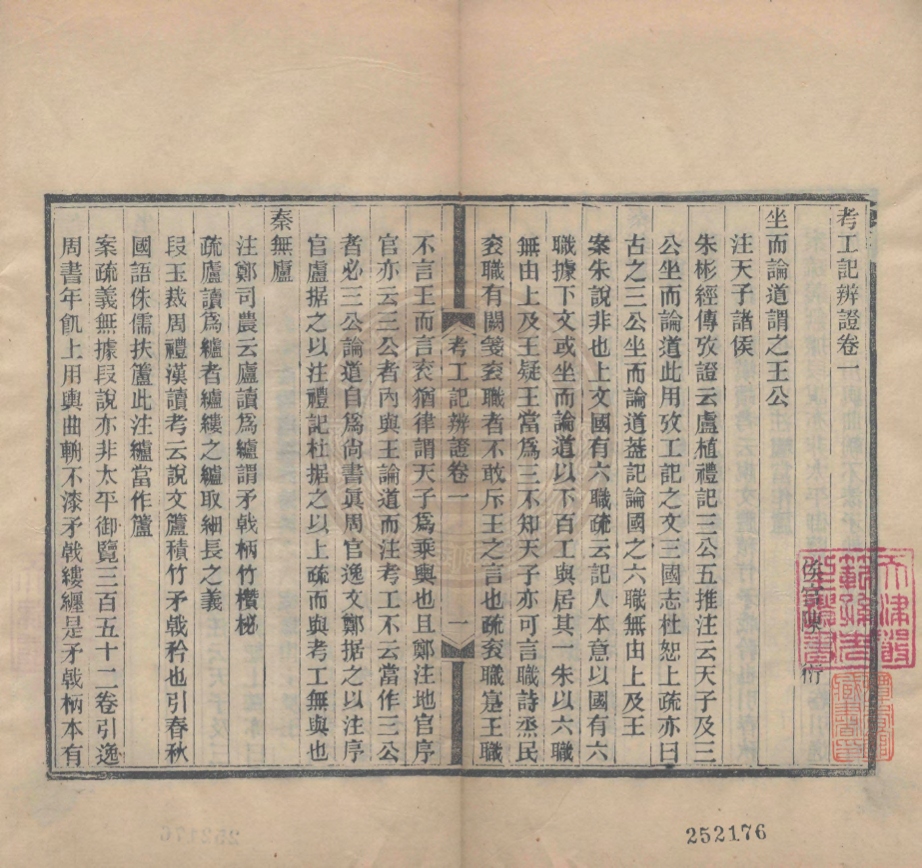 考工記辨證卷一
侯官陳衍
坐而論道謂之王公
注天子諸侯
朱彬經傳攷證云盧植禮記三公五推注云天子及三
公坐而論道此用攷工記之文三國志杜恕上疏亦曰
古之三公坐而論道葢記論國之六職無由上及王
案朱說非也上文國有六職疏云記人本意以國有六
職據下文或坐而論道以下百工與居其一朱以六職
無由上及王疑王當爲三不知天子亦可言職詩烝民
衮職有闕箋衮職者不敢斥王之言也疏衮職寔王職
考工記辨證卷一
一
不言王而言衮猶律謂天子爲乘輿也且鄭注地官序
官亦云三公者內與王論道而注考工不云當作三公
者必三公論道自爲尚書眞周官逸文鄭据之以注序
官盧据之以注禮記杜据之以上疏而與考工無與也
秦無廬
注鄭司農云廬讀爲纑謂矛戟柄竹欑柲
疏廬讀爲纑者纑縷之纑取細長之義
段玉裁周禮漢讀考云說文籚積竹矛戟矜也引春秋
國語侏儒扶籚此注纑當作籚
案疏義無據段說亦非太平御覽三百五十二卷引逸
周書年飢上用輿曲輈不漆矛戟縷纏是矛戟柄本有
252176